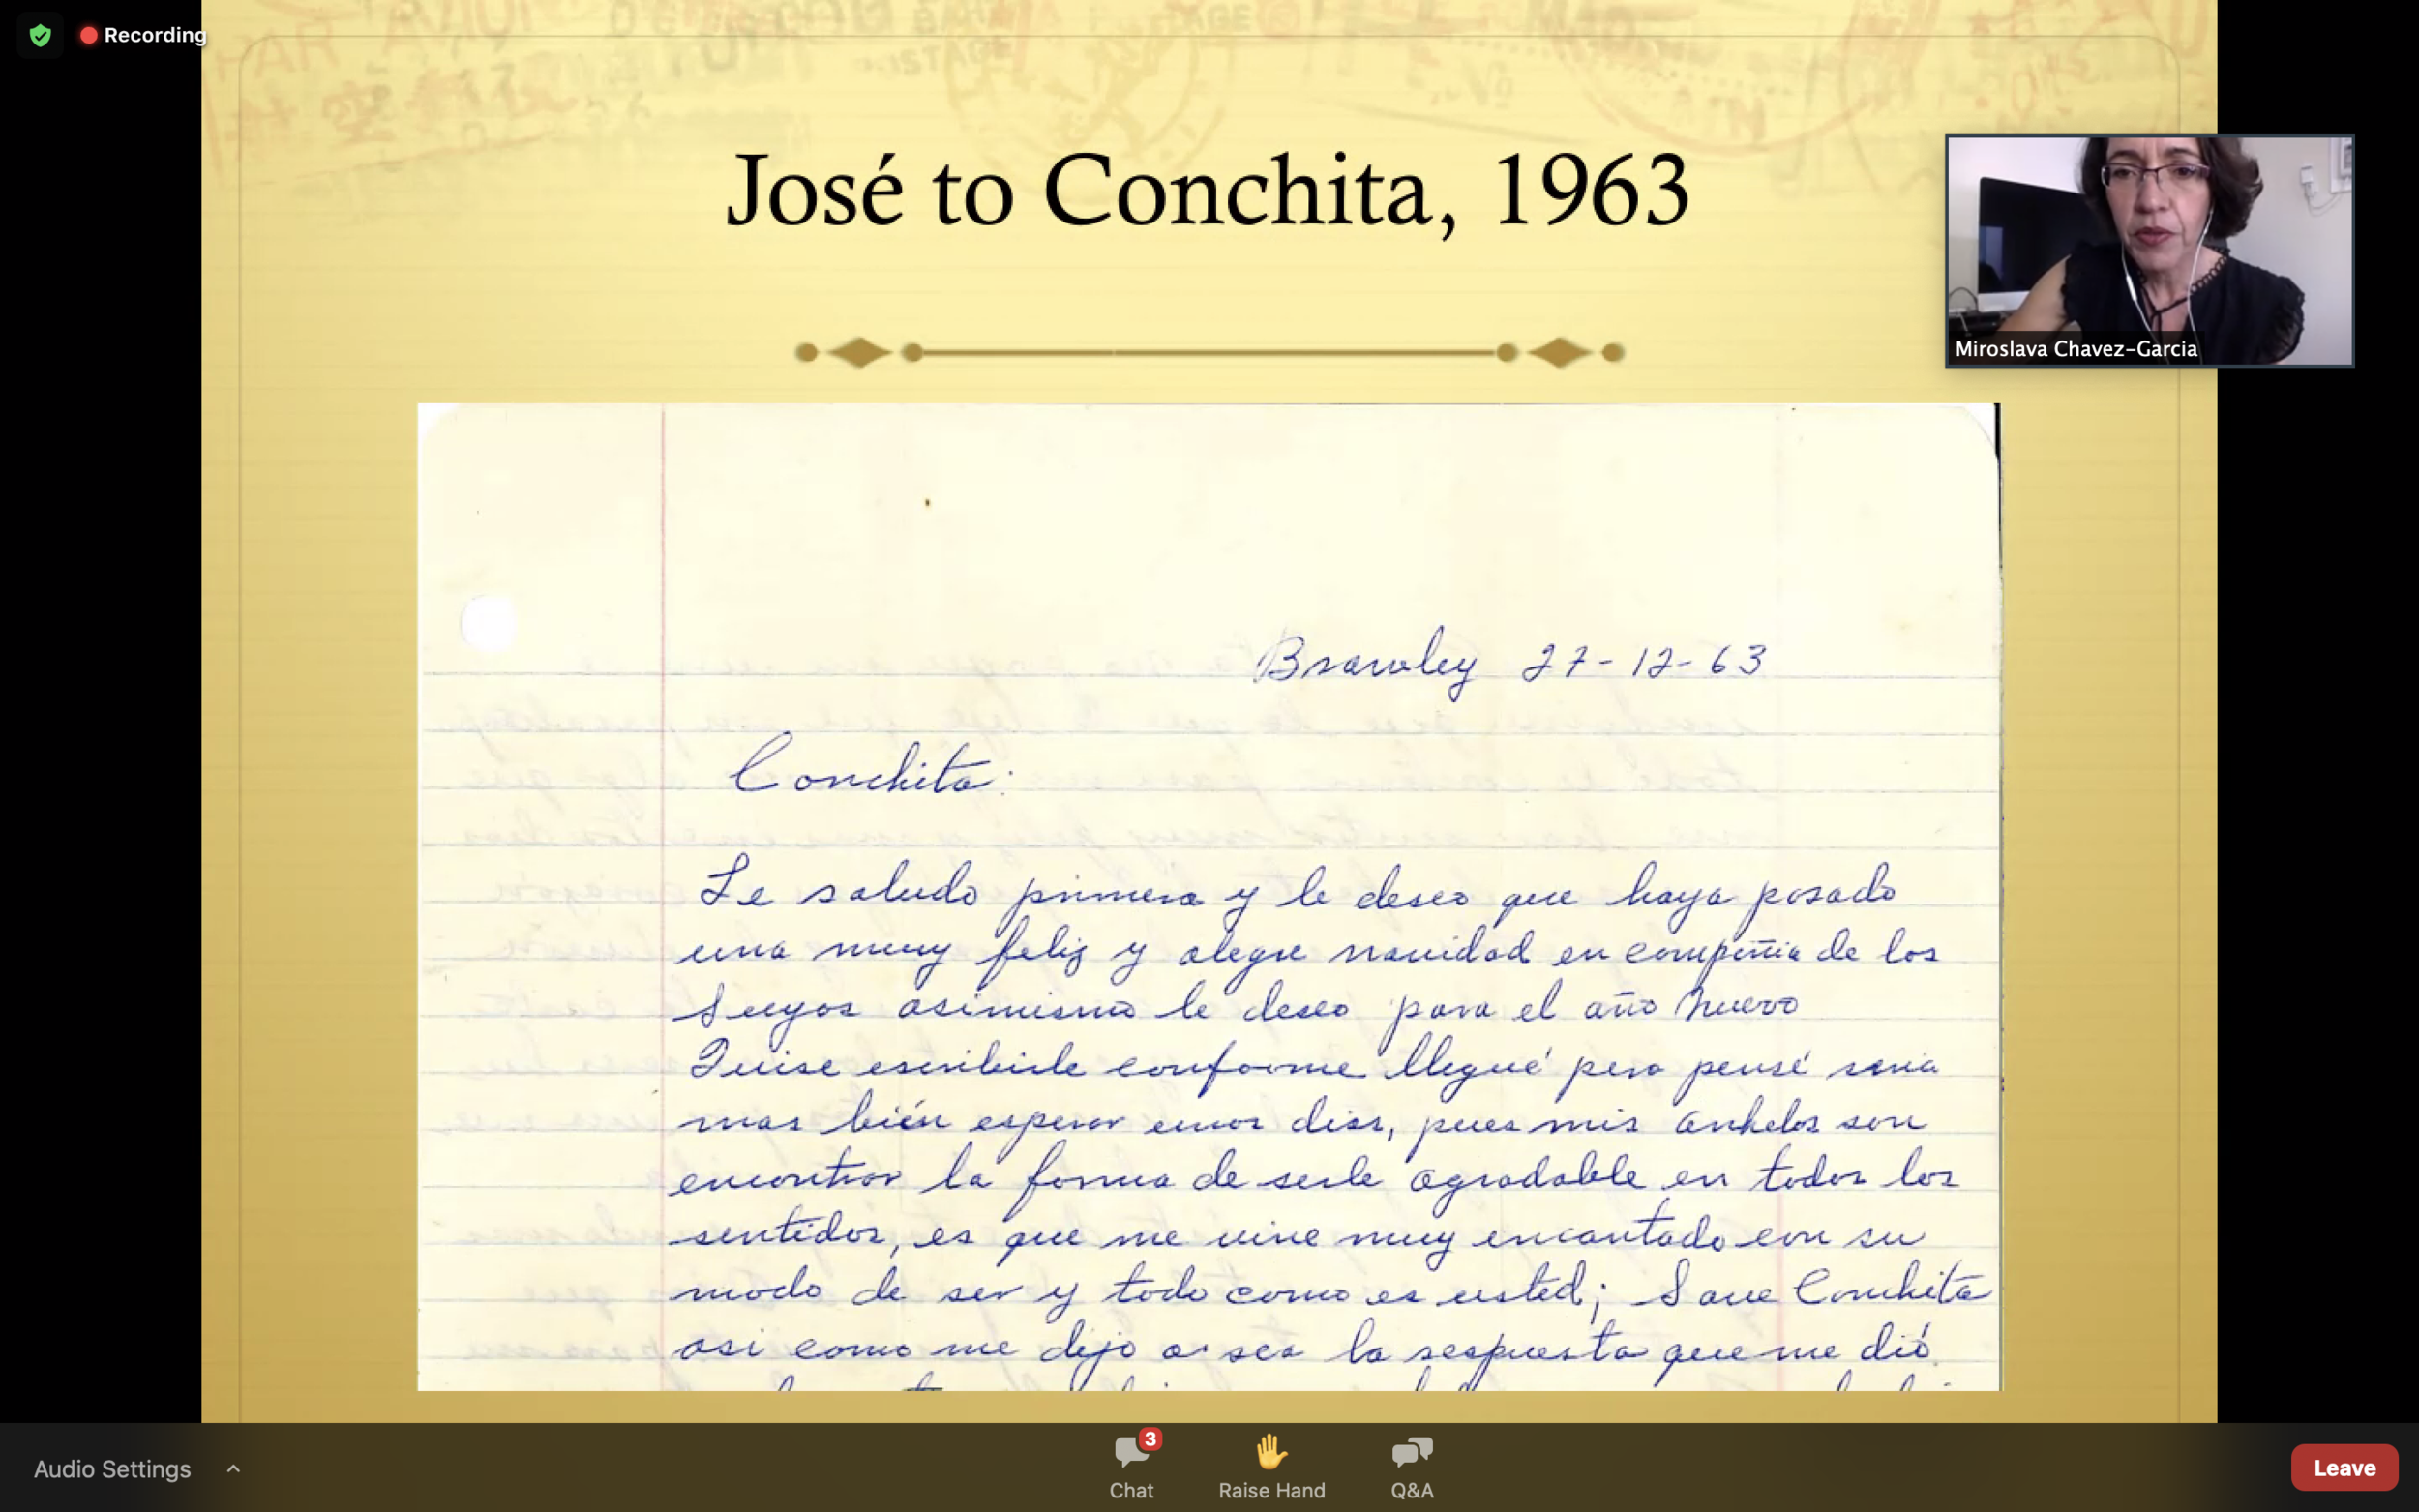 Recording
José to Conchita, 1963
Miroslava Chavez-Garcia
Brawley 27-12-63
Conchita:
Le saludo primero y le deseo que haya pasado
una muy feliz y alegre navidad en compañia de los
Suyos asimismo le deseo para el año Nuevo
Quise escribirle conforme llegué pero pensé seria
mas bién esperar unos dias, pues mis anhelos son
encontrar la forma de serle agradable en todos los
sentidos, es que me vine muy encantado con su
modo de ser y todo como es usted; Save Conchita
asi como me dijo o sea la respuesta que me dió
Audio Settings
3
Chat
Raise Hand
Q&A
Leave